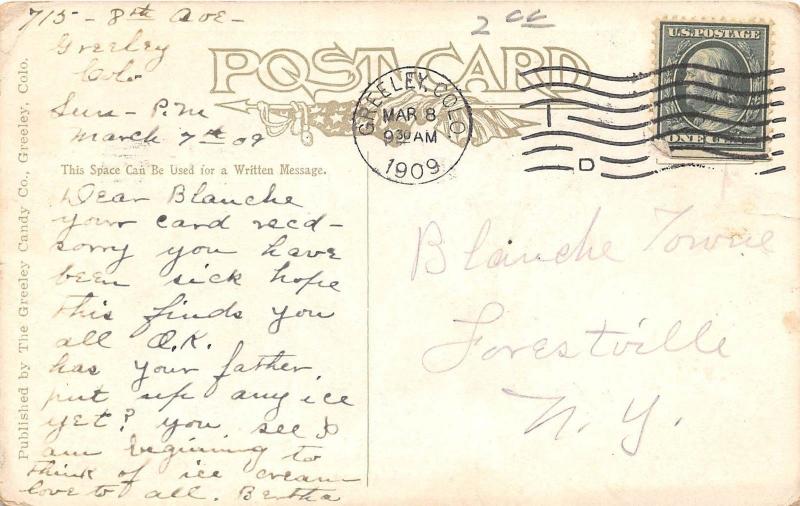 715 - 8th Ave -
Greeley
Colo
Sun - P.M
March 7th 09
2 cc
POST CARD
GREELEY, COLO.
MAR 8
9 30 AM
1909
1
D
U.S. POSTAGE
ONE CENT
This Space Can Be Used for a Written Message.
Dear Blanche
your card recd -
sorry you have
been sick hope
this finds you
all O.K.
has your father
put up any ice
yet? you see I
am beginning to
think of ice cream -
love to all. Bertha
Blanche Towne
Forestville
N. Y.
Published by The Greeley Candy Co., Greeley, Colo.